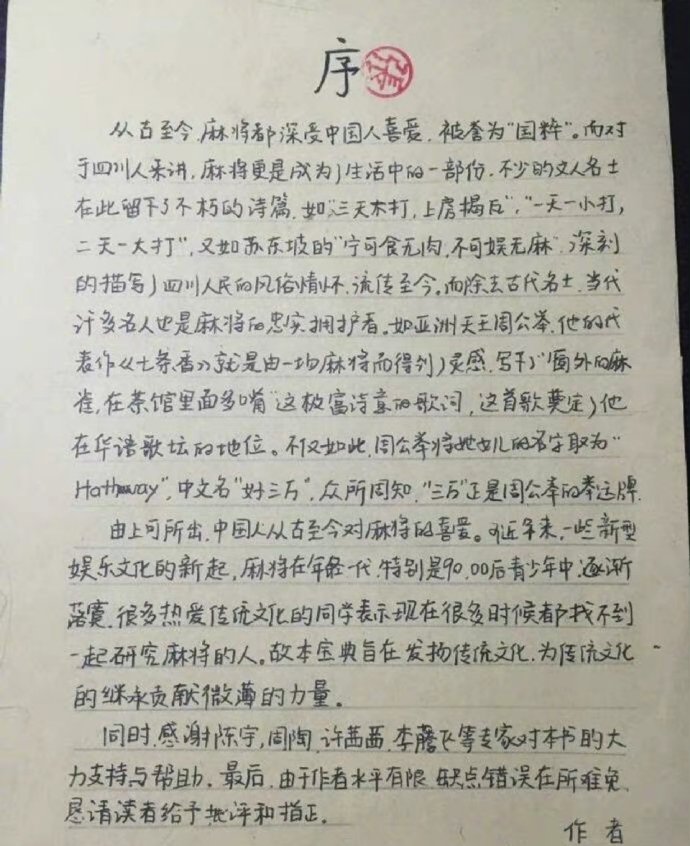 序
从古至今,麻将都深受中国人喜爱,被誉为"国粹"。而对
于四川人来讲,麻将更是成为了生活中的一部份,不少的文人名士
在此留下了不朽的诗篇,如"三天不打,上房揭瓦","一天一小打,
二天一大打",又如苏东坡的"宁可食无肉,不可娱无麻",深刻
的描写了四川人民的风俗情怀,流传至今。而除去古代名士,当代
许多名人也是麻将的忠实拥护者。如亚洲天王周公举,他的代
表作《七条香》就是由一场麻将而得到了灵感,写下了"窗外的麻
雀,在茶馆里面多嘴"这极富诗意的歌词,这首歌奠定了他
在华语歌坛的地位。不仅如此,周公举将她女儿的名字取为"
Hathaway",中文名"好三万",众所周知,"三万"正是周公举的幸运牌.
由上可所出,中国人从古至今对麻将的喜爱。近年来,一些新型
娱乐文化的新起,麻将在年轻一代,特别是90,00后青少年中,逐渐
落寞,很多热爱传统文化的同学表示现在很多时候都找不到
一起研究麻将的人。故本宝典旨在发扬传统文化,为传统文化
的继承贡献微薄的力量。
同时,感谢陈宇,周陶,许茜茜,李腾飞等专家对本书的大
力支持与帮助,最后,由于作者水平有限,缺点错误在所难免,
恳请读者给予批评和指正。
作者